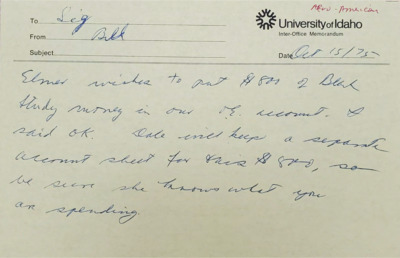 Afro-American
To Sig
From Bill
University of Idaho
Inter-Office Memorandum
Subject
Date Oct 15/75
Elmer wishes to put $800 of Black
Study money in our O.E. account. I
said OK. Dale will keep a separate
account sheet for this $800, so
be sure she knows what you
are spending